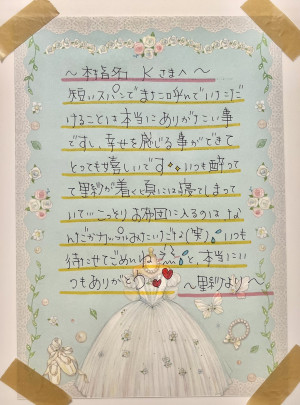 ～本指名 Kさまへ～
短いスパンでまた呼んでいただ
けることは本当にありがたい事
ですし、幸せを感じる事ができて
とっても嬉しいです いつも酔って
て里紗が着く頃には寝てしまって
いて…こっそりお布団に入るのは な
んだかカップルみたいだな(笑) いつも
待たせてごめいね 本当にい
つもありがとう
～里紗より～